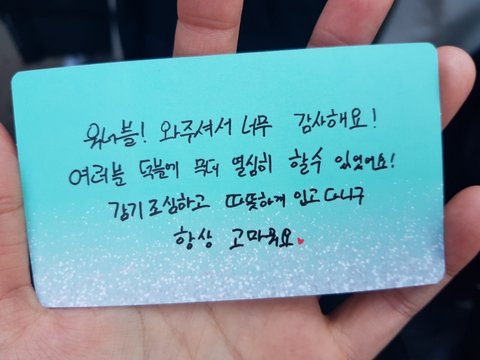 워너블! 와주셔서 너무 감사해요!
여러분 덕분에 무대 열심히 할수 있었어요!
감기 조심하고 따뜻하게 입고 다니구
항상 고마워요♥